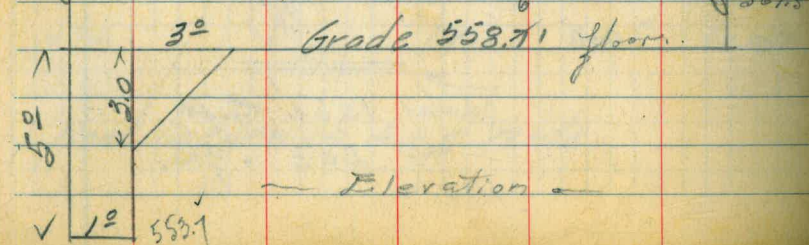 3º Grade 558.71 floor.
3.0
5º
— Elevation —
1º 553.7